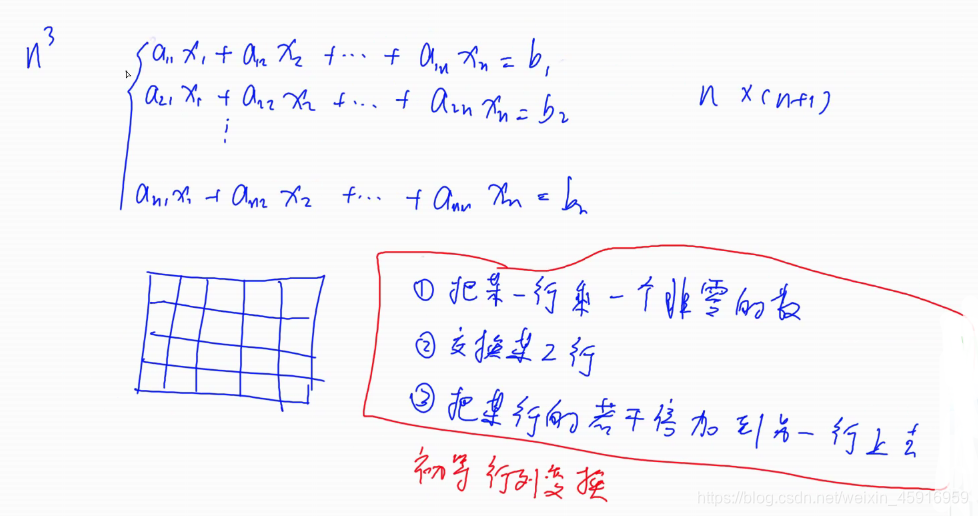 n³
a₁₁ x₁ + a₁₂ x₂ + ··· + a₁ₙ xₙ = b₁
a₂₁ x₁ + a₂₂ x₂ + ··· + a₂ₙ xₙ = b₂
n ×(n+1)
⋮
aₙ₁ x₁ + aₙ₂ x₂ + ··· + aₙₙ xₙ = bₙ
① 把某一行乘一个非零的数
② 交换某2行
③ 把某行的若干倍加到另一行上去
初等行列变换
https://blog.csdn.net/weixin_45916959